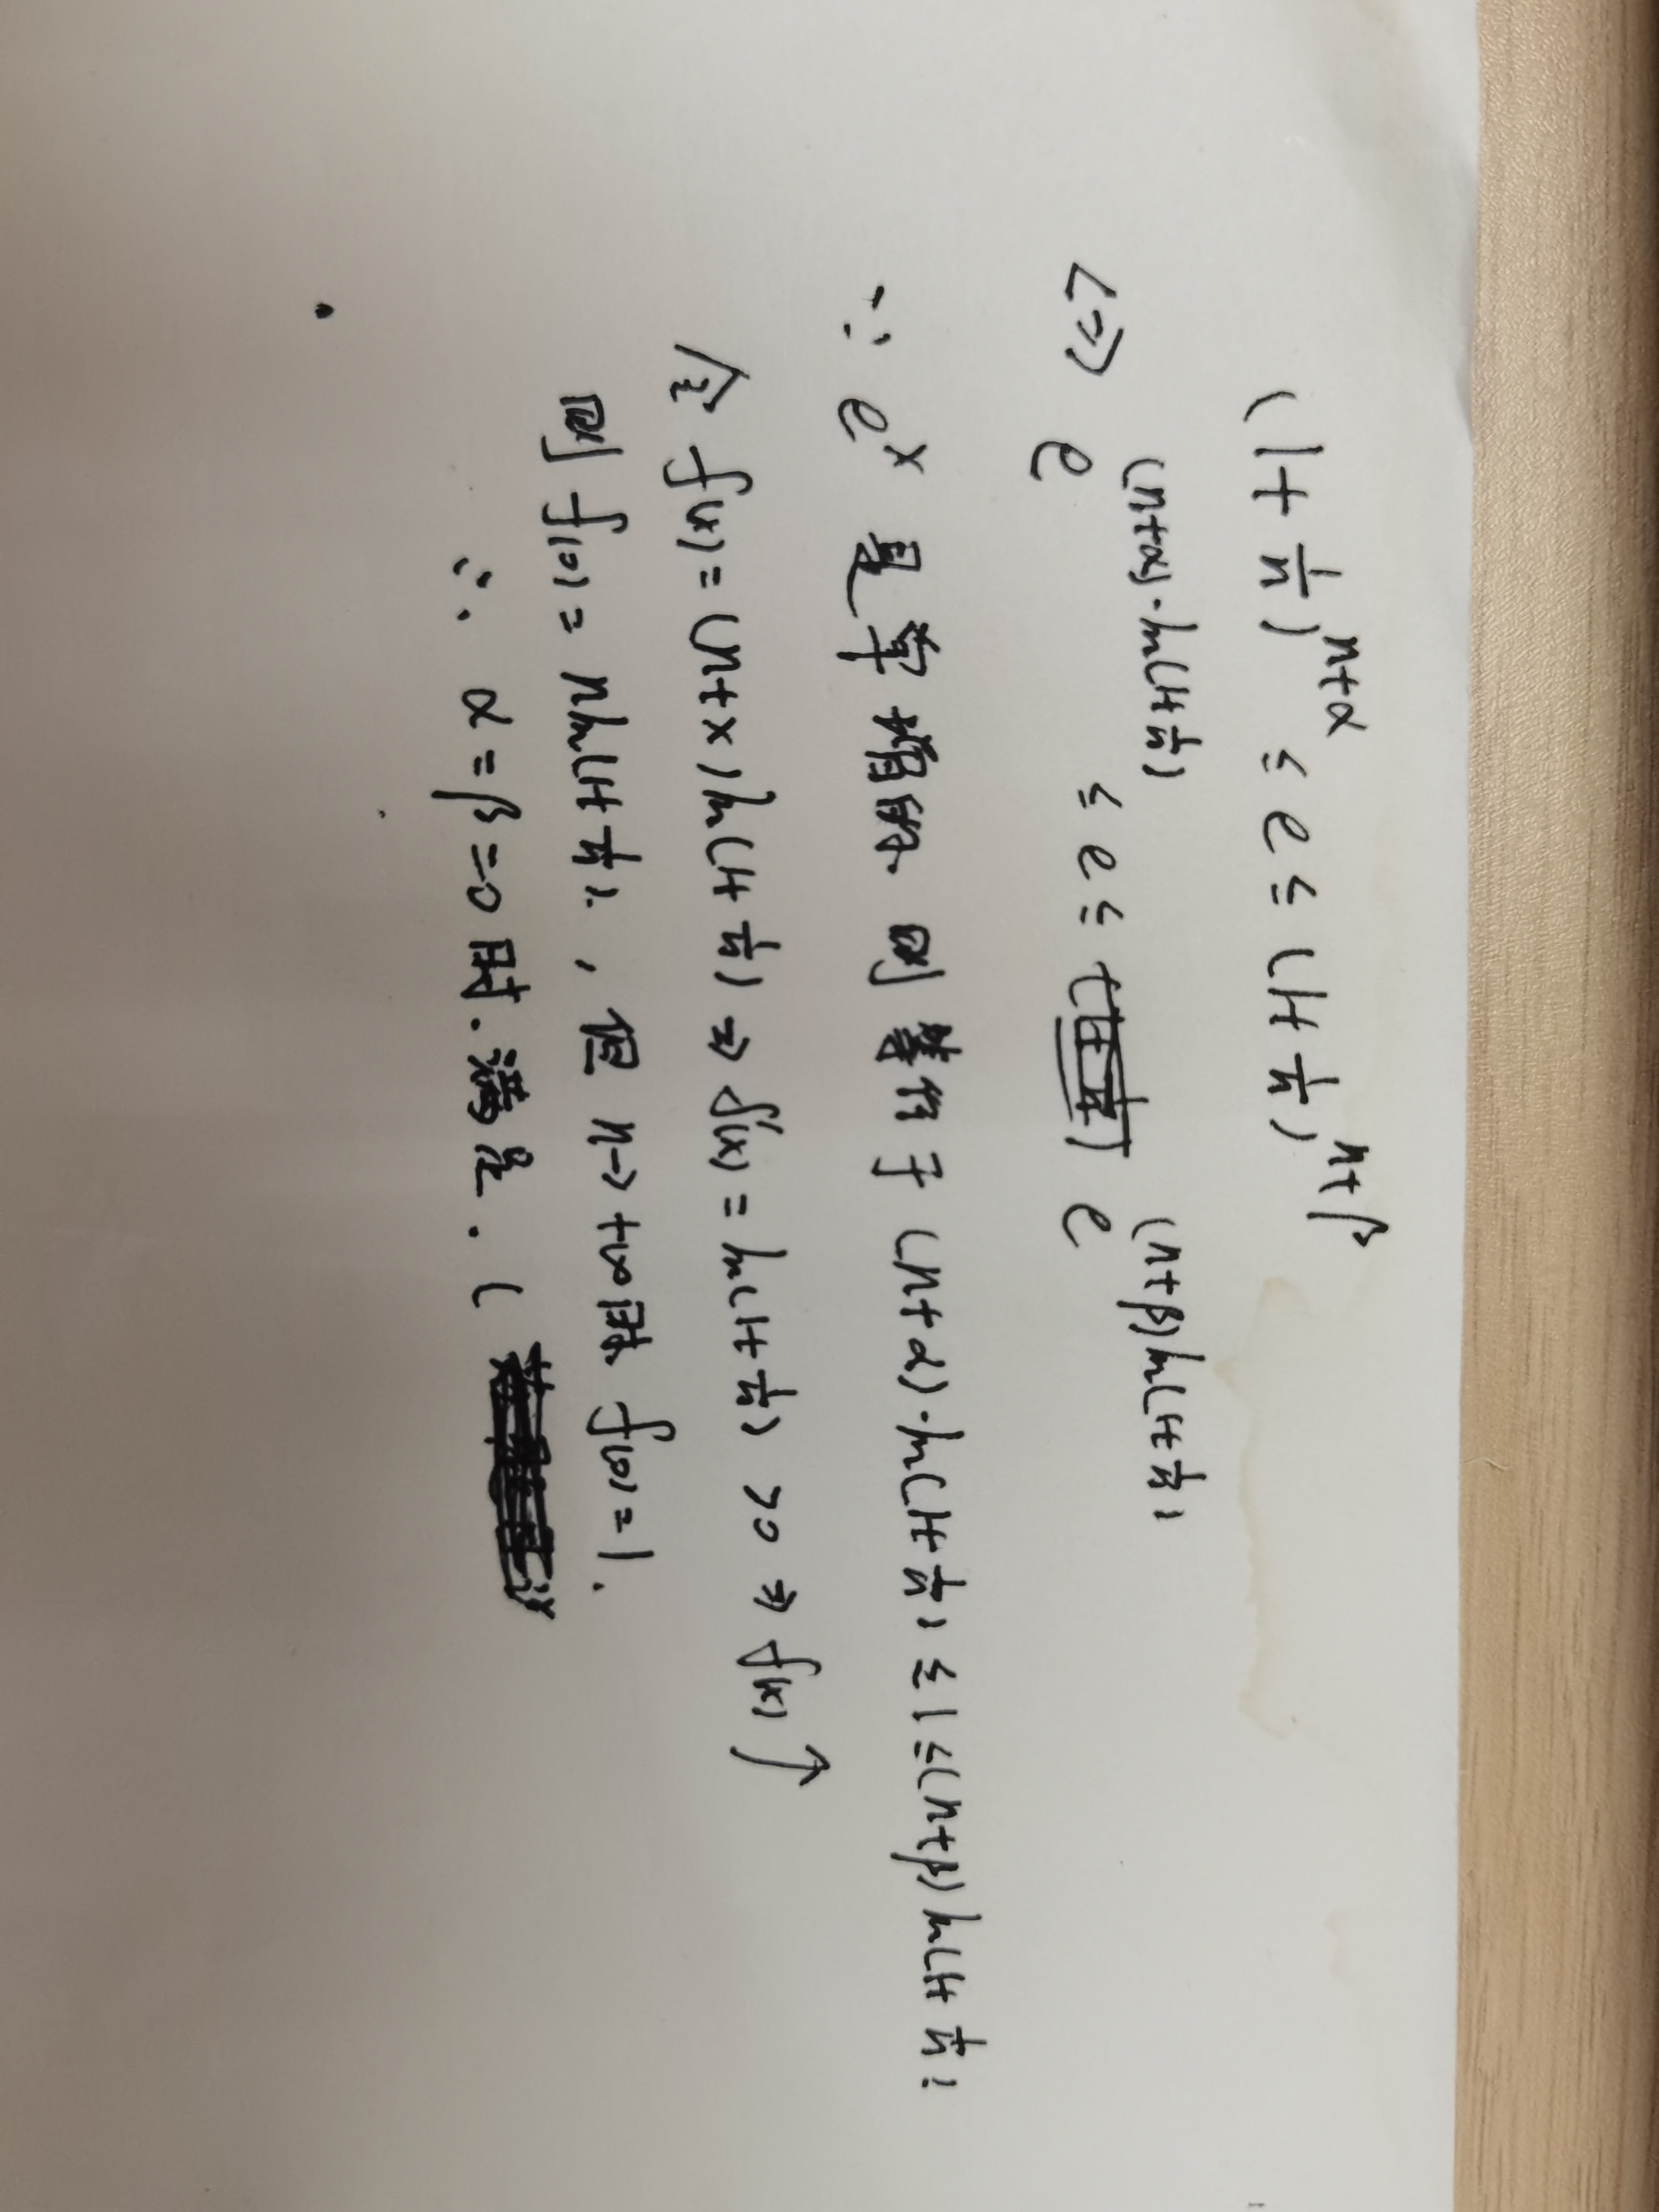 (1+1/n)^{n+α} ≤ e ≤ (1+1/n)^{n+β}
<=> e^{(n+α)·ln(1+1/n)} ≤ e ≤ e^{(n+β)ln(1+1/n)}
∵ e^x 是单增的. 则等价于 (n+α)·ln(1+1/n) ≤ 1 ≤ (n+β)ln(1+1/n)
令 f(x) = (n+x)ln(1+1/n) ⇒ f'(x) = ln(1+1/n) > 0 ⇒ f(x) ↑
则 f(0) = nln(1+1/n). , 但 n→+∞时. f(0) = 1.
∴ α=β=0时. 满足. (